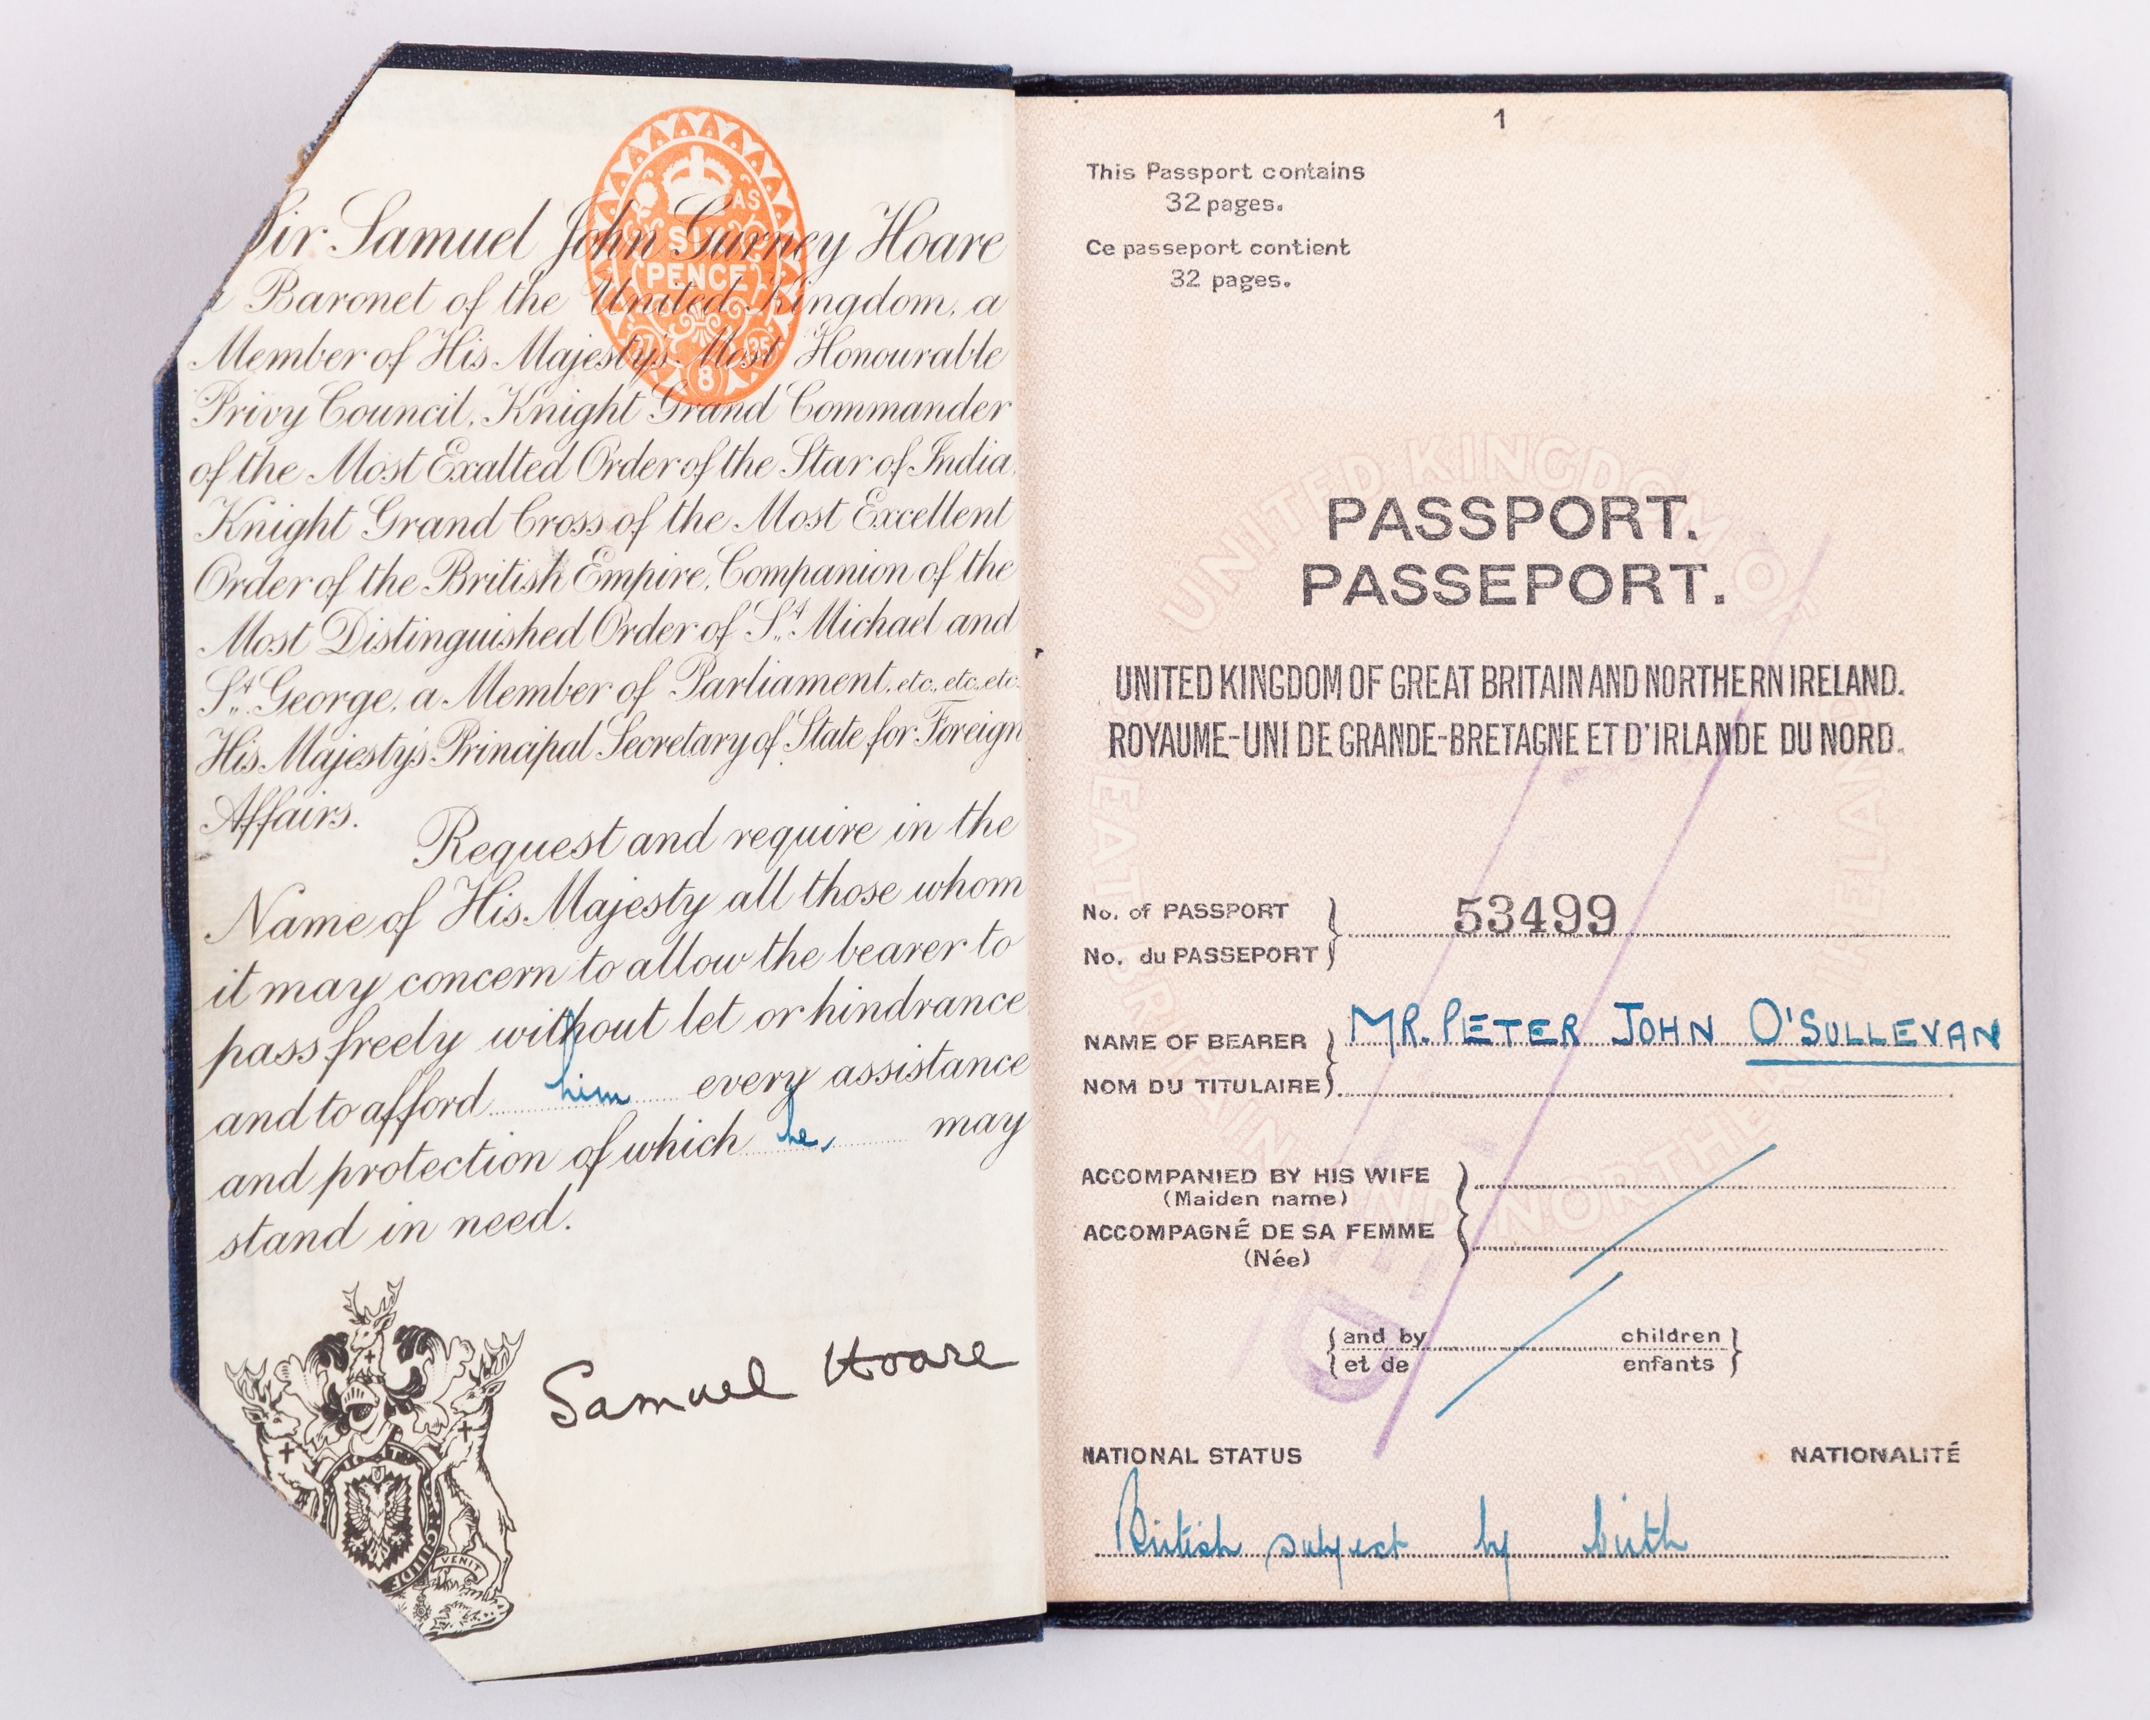 Sir Samuel John Gurney Hoare
Baronet of the United Kingdom, a
Member of His Majesty's Most Honourable
Privy Council, Knight Grand Commander
of the Most Exalted Order of the Star of India,
Knight Grand Cross of the Most Excellent
Order of the British Empire, Companion of the
Most Distinguished Order of St. Michael and
St. George, a Member of Parliament, etc., etc., etc.
His Majesty's Principal Secretary of State for Foreign
Affairs.
Request and require in the
Name of His Majesty all those whom
it may concern to allow the bearer to
pass freely without let or hindrance
and to afford him every assistance
and protection of which he, may
stand in need.
Samuel Hoare
VENIT
AS
SIX
PENCE
35
8
1
This Passport contains
32 pages.
Ce passeport contient
32 pages.
PASSPORT.
PASSEPORT.
UNITED KINGDOM OF GREAT BRITAIN AND NORTHERN IRELAND.
ROYAUME-UNI DE GRANDE-BRETAGNE ET D'IRLANDE DU NORD.
No. of PASSPORT 53499
No. du PASSEPORT
NAME OF BEARER MR. PETER JOHN O'SULLEVAN
NOM DU TITULAIRE
ACCOMPANIED BY HIS WIFE
(Maiden name)
ACCOMPAGNÉ DE SA FEMME
(Née)
and by children
et de enfants
NATIONAL STATUS NATIONALITÉ
British subject by birth
UNITED KINGDOM OF